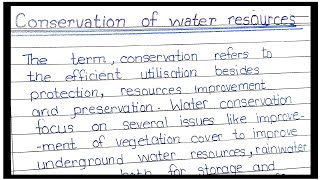 Conservation of water resources
The term, conservation refers to
the efficient utilisation besides
protection, resources improvement
and preservation. Water conservation
focus on several issues like improve-
-ment of vegetation cover to improve
underground water resources, rainwater
both for storage and